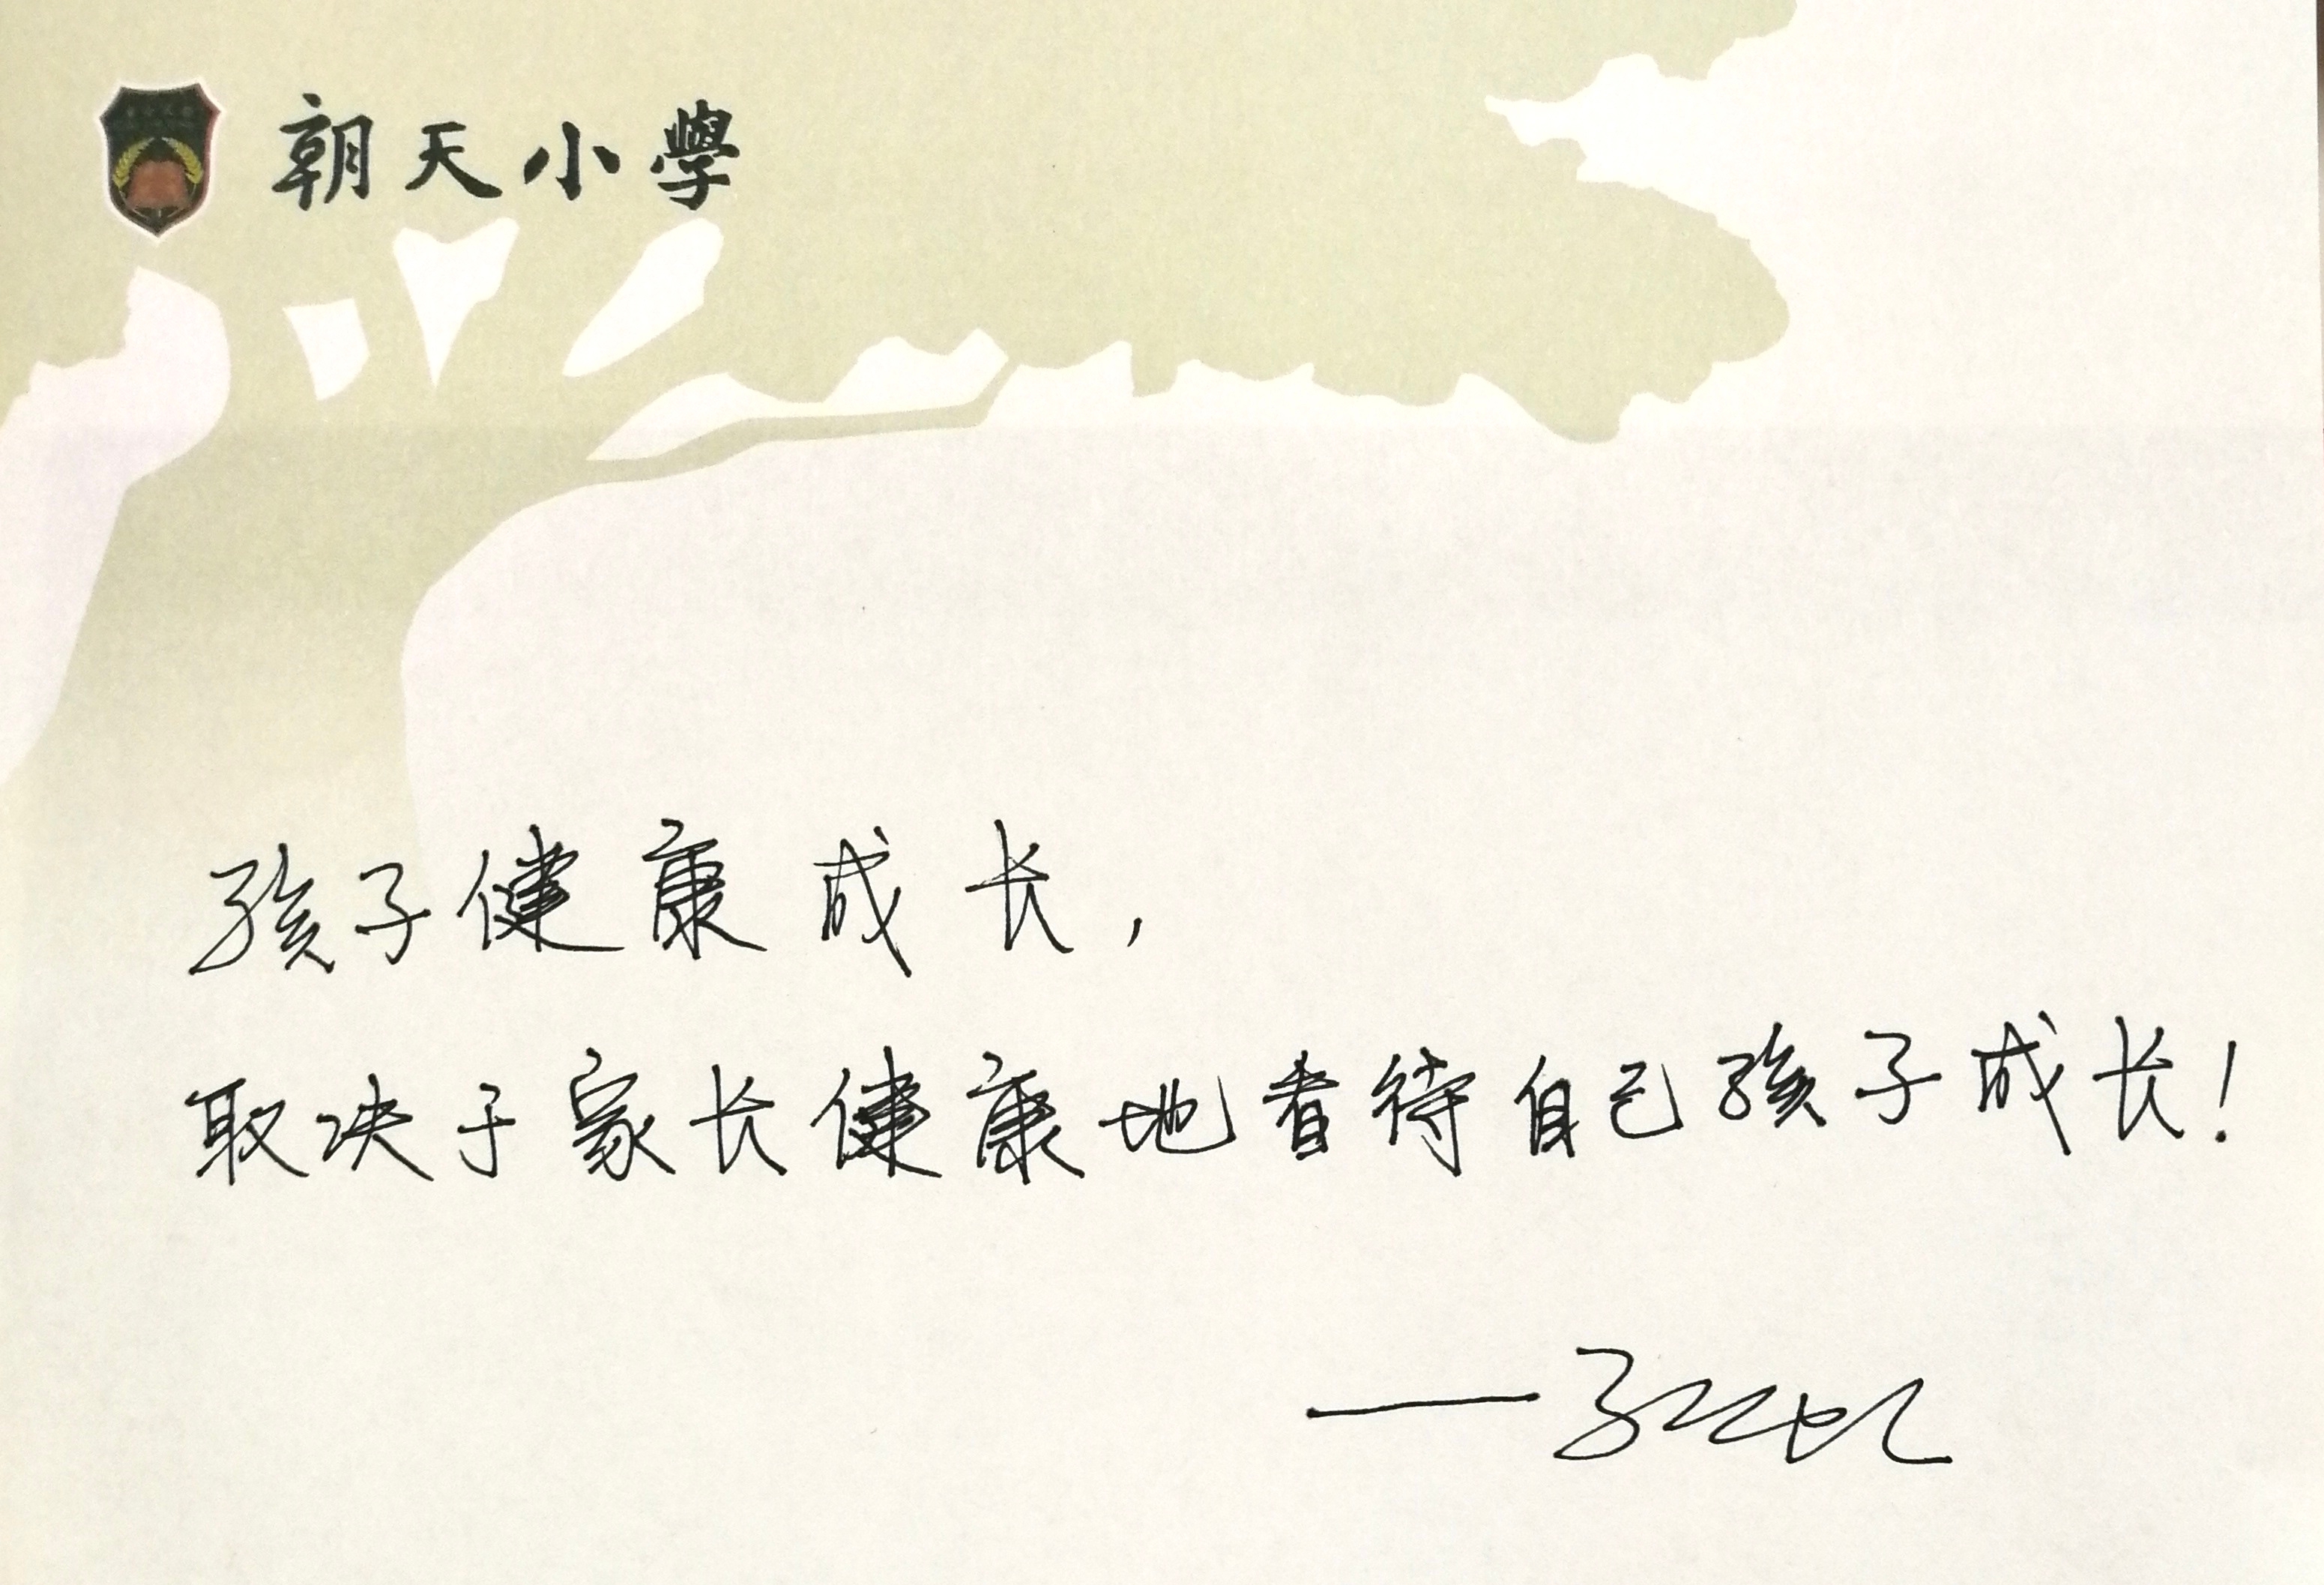 朝天小學
孩子健康成长，
取决于家长健康地看待自己孩子成长！